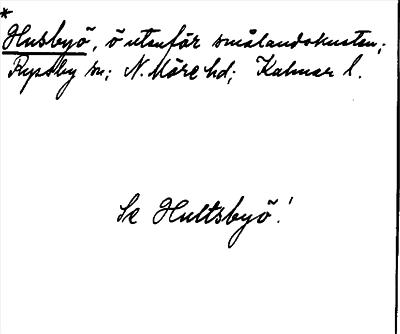 *
Husbyö, ö utanför smålandskusten;
Ryssby sn; N. Möre hd; Kalmar l.
Se Hultsbyö!